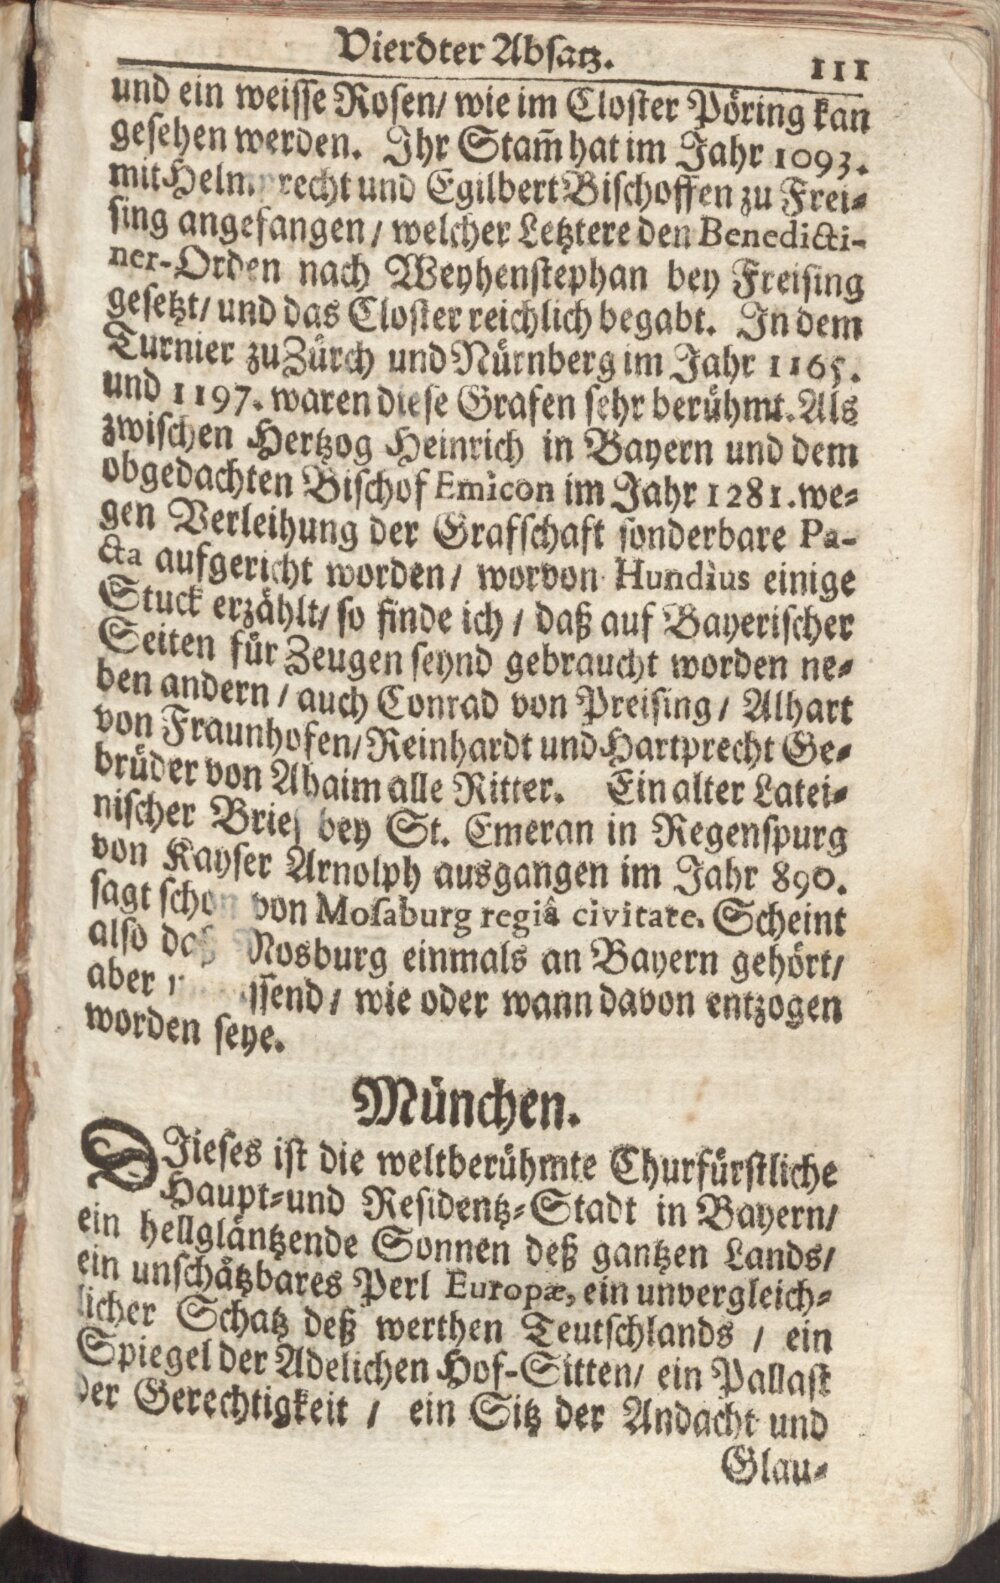 Vierdter Absatz. 111
und ein weisse Rosen/ wie im Closter Pöring kan
gesehen werden. Ihr Stam̃ hat im Jahr 1093.
mit und Egilbert Bischoffen zu Frei-
sing angefangen / welcher Letztere den Benedicti-
ner-Orden nach Weyhenstephan bey Freising
gesetzt/ und das Closter reichlich begabt. In dem
Turnier zu Zürch und Nürnberg im Jahr 1165.
und 1197. waren diese Grafen sehr berühmt. Als
zwischen Hertzog Heinrich in Bayern und dem
obgedachten Bischof Emicon im Jahr 1281. we-
gen Verleihung der Grafschaft sonderbare Pa-
cta aufgericht worden / worvon Hundius einige
Stuck erzählt/ so finde ich / daß auf Bayerischer
Seiten für Zeugen seynd gebraucht worden ne-
ben andern / auch Conrad von Preising / Alhart
von Fraunhofen/ Reinhardt und Hartprecht Ge-
brüder von Ahaim alle Ritter. Ein alter Latei-
nischer Brief bey St. Emeran in Regenspurg
von Kayser Arnolph ausgangen im Jahr 890.
sagt schon von Mosaburg regiâ civitate. Scheint
also daß Mosburg einmals an Bayern gehört/
aber / wie oder wann davon entzogen
worden seye.
München.
DJieses ist die weltberühmte Churfürstliche
Haupt- und Residentz-Stadt in Bayern/
ein hellgläntzende Sonnen deß gantzen Lands/
ein unschätzbares Perl Europæ, ein unvergleich-
licher Schatz deß werthen Teutschlands / ein
Spiegel der Adelichen Hof-Sitten/ ein Pallast
der Gerechtigkeit / ein Sitz der Andacht und
Glau-